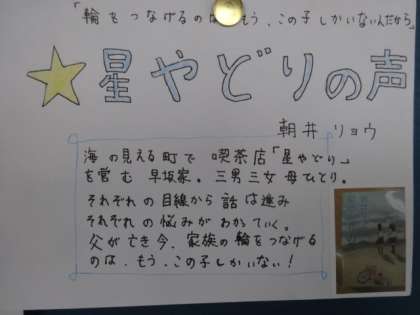 「輪をつなげるのは、もう、この子しかいないんだから」
星やどりの声
朝井リョウ
海の見える町で喫茶店「星やどり」
を営む早坂家。三男三女母ひとり。
それぞれの目線から話は進み
それぞれの悩みがわかていく。
父が亡き今、家族の輪をつなげる
のは、もう、この子しかいない!